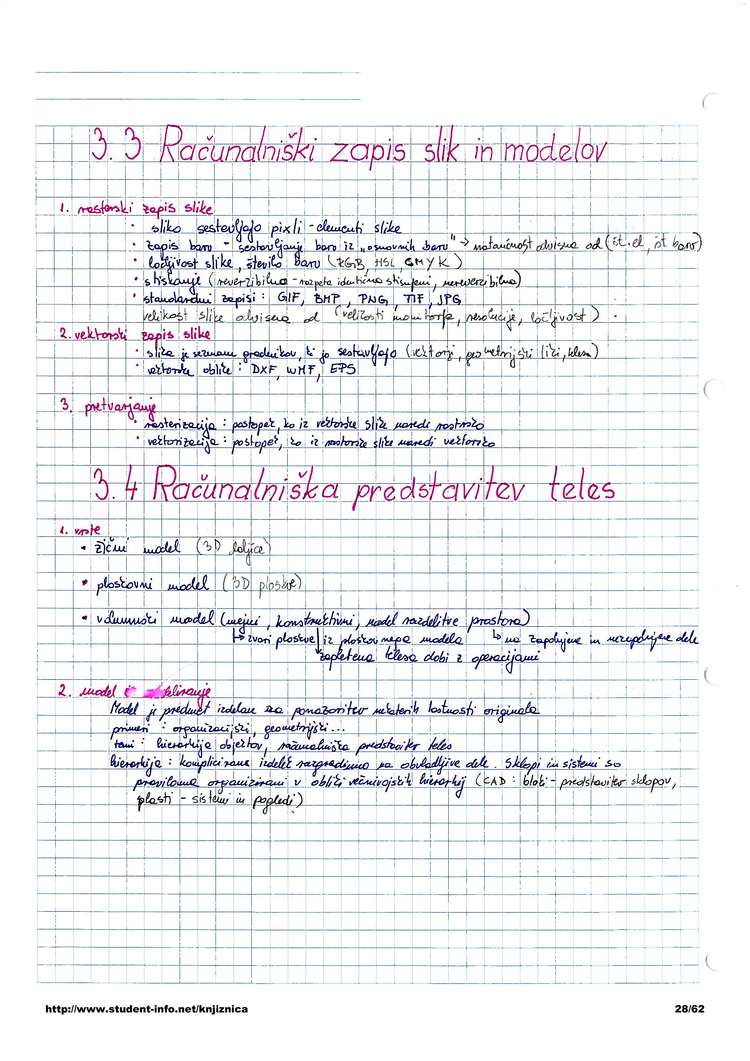 3.3 Računalniški zapis slik in modelov
1. rasterski zapis slike
• sliko sestavljajo pixli - elementi slike
• zapis barv - sestavljanje barv iz „osnovnih barv" → natančnost odvisna od (št. el, št barv)
• ločljivost slike, število barv (RGB, HSL, CMYK)
• stiskanje (reverzibilno - razpeta identična stisnjeni, nerevercibilno)
• standardni zapisi: GIF, BMP, PNG, TIF, JPG
velikost slike odvisena od (velikosti monitorja, resolucije, ločljivost)
2. vektorski zapis slike
• slika je seznam gradnikov, ki jo sestavljajo (vektorji, geometrijski liki, telesa)
• vektorske oblike: DXF, WMF, EPS
3. pretvarjanje
• rasterizacija: postopek, ko iz vektorske slike naredi rastrsko
• vektorizacija: postopek, ko iz rastrske slike naredi vektorsko
3.4 Računalniška predstavitev teles
1. vrste
• žični model (3D daljice)
• ploskovni model (3D ploskve)
• volumnski model (mejni, konstruktivni, model razdelitve prostora)
↳ izvori ploskve iz ploskovnega modela ↳ na zapolnjene in nezapolnjene dele
zapletena telesa dobi z operacijami
2. model
Model je predmet izdelan za ponazoritev nekaterih lastnosti originala
primeri: organizacijski, geometrijski...
hierarhija objektov, računalniška predstavitev teles
hierarhija: komplicirane izdelke razgradimo na obvladljive dele. Sklopi in sistemi so
praviloma organizirani v obliki večnivojskih hierarhij (CAD: bloki - predstavitev sklopov,
plasti - sistemi in pogledi)
http://www.student-info.net/knjiznica
28/62